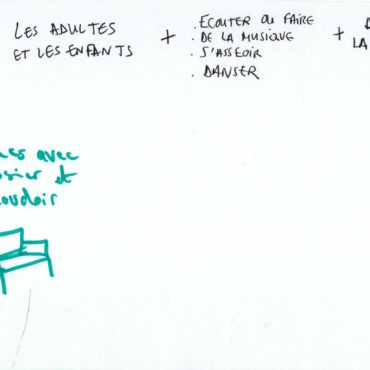 LES ADULTES
ET LES ENFANTS
+
. ECOUTER OU FAIRE
. DE LA MUSIQUE
. S'ASSEOIR
. DANSER
+
LA
avec
et